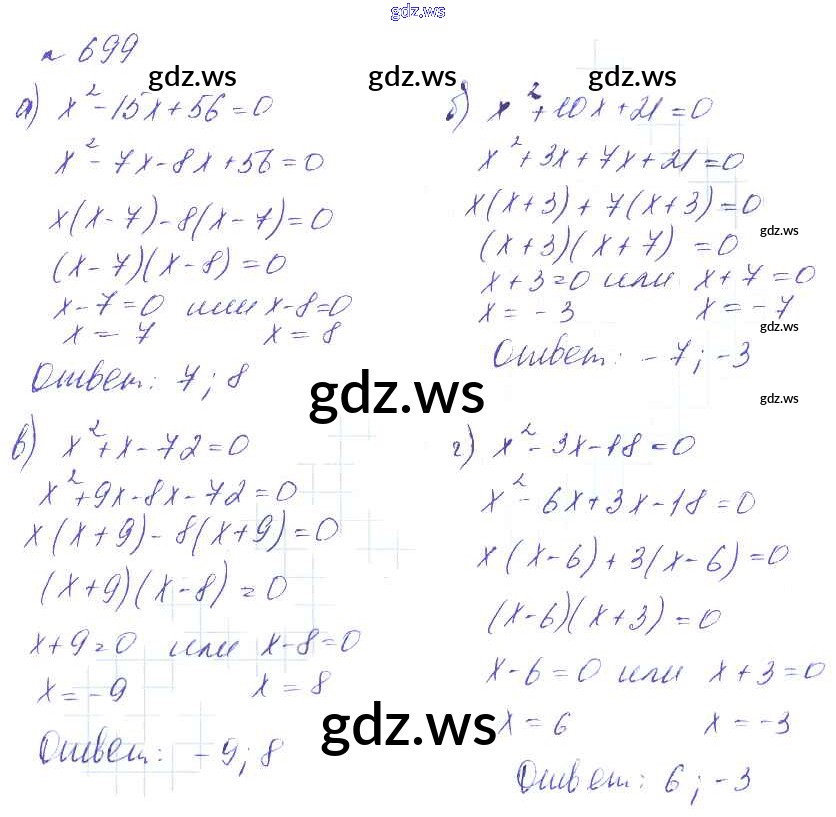 gdz.ws
№ 699
gdz.ws
gdz.ws
а) x² - 15x + 56 = 0
x² - 7x - 8x + 56 = 0
x(x - 7) - 8(x - 7) = 0
(x - 7)(x - 8) = 0
x - 7 = 0 или x - 8 = 0
x = 7 x = 8
Ответ: 7; 8
б) x² + 10x + 21 = 0
x² + 3x + 7x + 21 = 0
x(x + 3) + 7(x + 3) = 0
gdz.ws
(x + 3)(x + 7) = 0
x + 3 = 0 или x + 7 = 0
x = -3 x = -7
gdz.ws
Ответ: -7; -3
gdz.ws
gdz.ws
в) x² + x - 72 = 0
x² + 9x - 8x - 72 = 0
x(x + 9) - 8(x + 9) = 0
(x + 9)(x - 8) = 0
x + 9 = 0 или x - 8 = 0
x = -9 x = 8
Ответ: -9; 8
г) x² - 3x - 18 = 0
x² - 6x + 3x - 18 = 0
x(x - 6) + 3(x - 6) = 0
(x - 6)(x + 3) = 0
x - 6 = 0 или x + 3 = 0
x = 6 x = -3
gdz.ws
Ответ: 6; -3